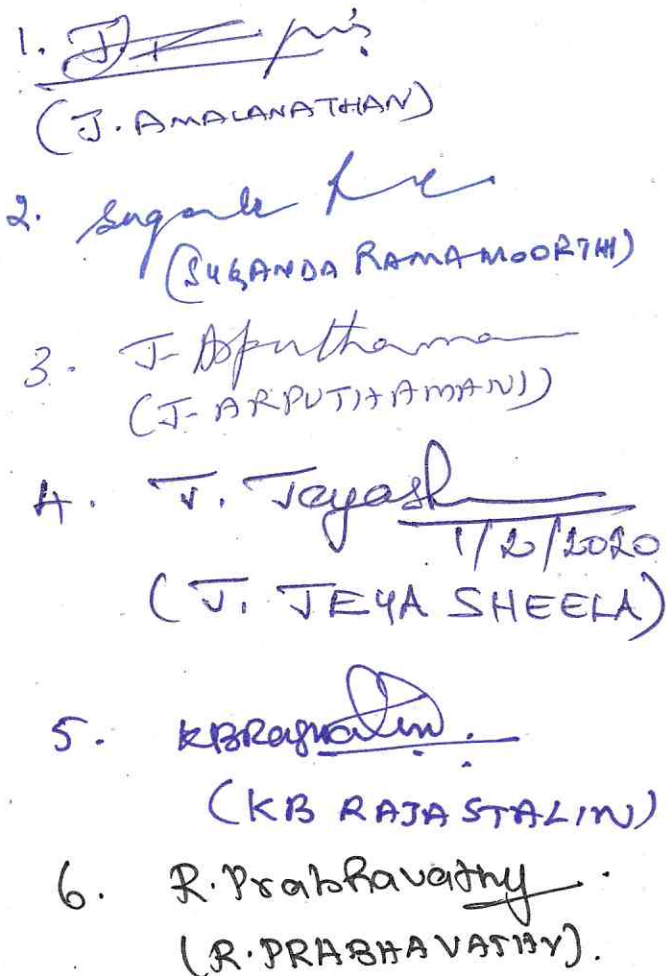 1. J.
(J. AMALANATHAN)
2.
(SUGANDA RAMAMOORTHI)
3. J. Arputhama
(J. ARPUTHAMANI)
4. J. Jeyash
1/2/2020
(J. JEYA SHEELA)
5. KBRajstalin.
(KB RAJA STALIN)
6. R. Prabhavathy.
(R. PRABHAVATHY).